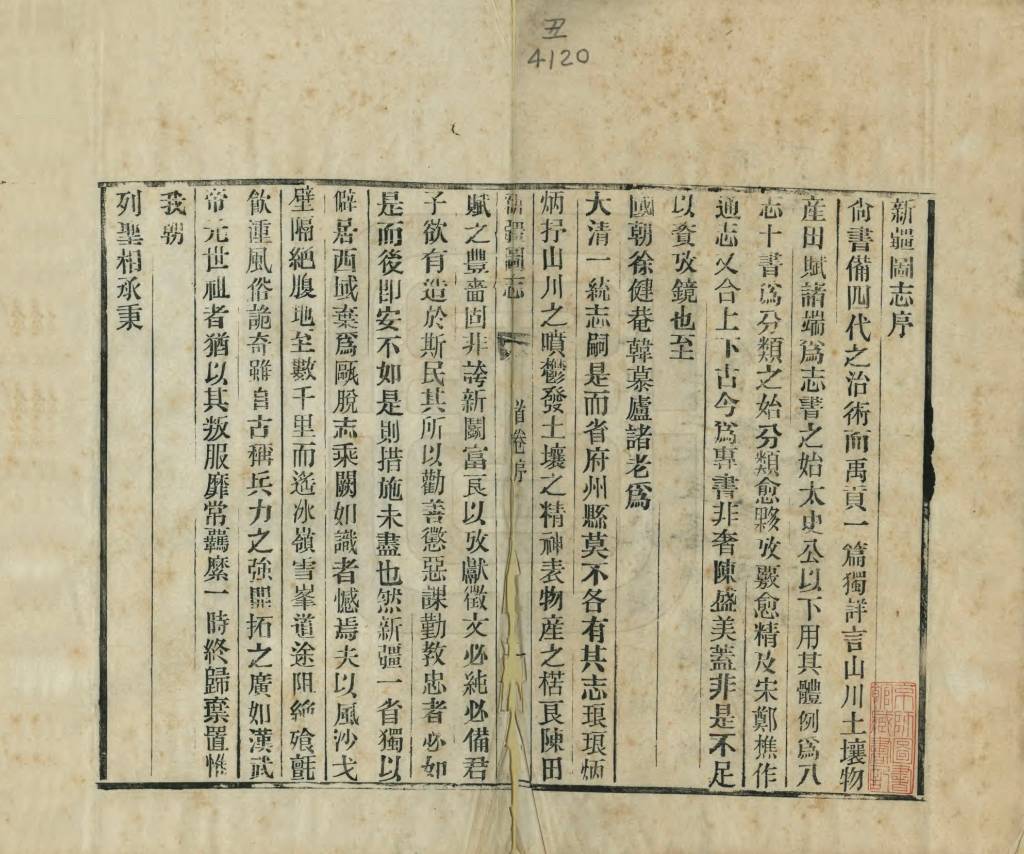 丑
4120
新疆圖志序
尙書備四代之治術而禹貢一篇獨詳言山川土壤物
產田賦諸端爲志書之始太史公以下用其體例爲八
志十書爲分類之始分類愈夥攷覈愈精及宋鄭樵作
通志又合上下古今爲專書非奢陳盛美蓋非是不足
以資攷鏡也至
國朝徐健菴韓慕廬諸老爲
大淸一統志嗣是而省府州縣莫不各有其志琅琅炳
炳抒山川之噴鬱發土壤之精神表物產之楛良陳田
新疆圖志
首卷序
一
賦之豐嗇固非誇新鬭富良以攷獻徵文必純必備君
子欲有造於斯民其所以勸善懲惡課勤教忠者必如
是而後卽安不如是則措施未盡也然新疆一省獨以
僻居西域棄爲甌脫志乘闕如識者憾焉夫以風沙戈
壁隔絕腹地至數千里而遙冰嶺雪峯道途阻絶飱氈
飮湩風俗詭奇雖自古稱兵力之強開拓之廣如漢武
帝元世祖者猶以其叛服靡常羈縻一時終歸棄置惟
我朝
列聖相承秉